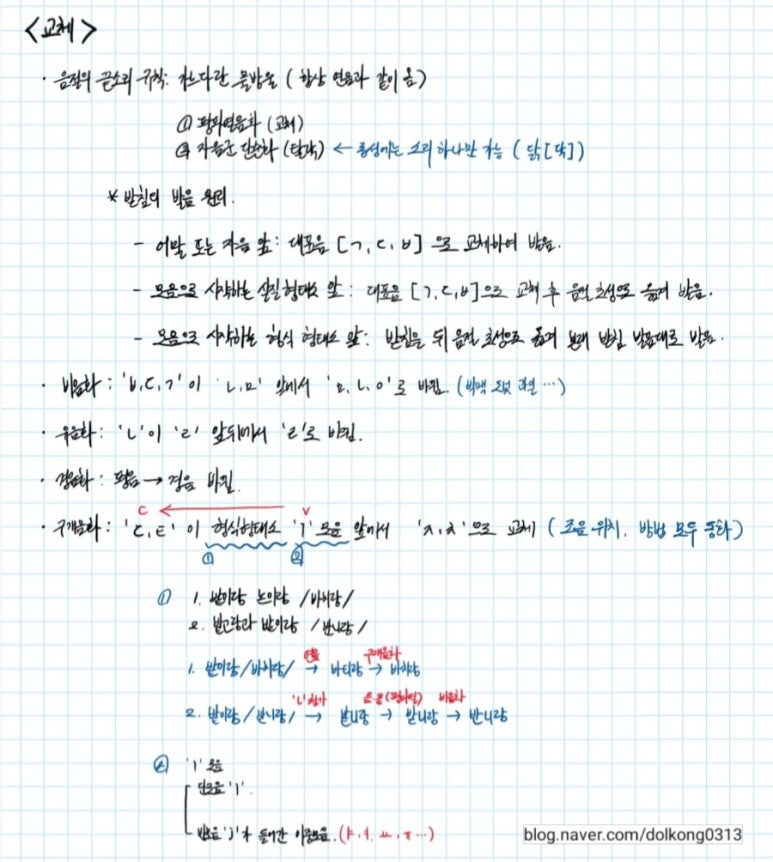 <교체>
· 음절의 끝소리 규칙: 커느다란 물방울 (항상 연음과 같이 옴)
① 평파열음화 (교체)
② 자음군 단순화 (탈락) ← 종성에는 소리 하나만 가능 ( 닭[닥])
* 받침의 발음 원리.
- 어말 또는 자음 앞 : 대표음 [ㄱ, ㄷ, ㅂ] 으로 교체하여 발음.
- 모음으로 시작하는 실질형태소 앞 : 대표음 [ㄱ,ㄷ,ㅂ]으로 교체 후 음절 초성으로 옮겨 발음.
- 모음으로 시작하는 형식 형태소 앞: 받침을 뒤 음절 초성으로 옮겨 본래 받침 발음대로 발음.
· 비음화 : 'ㅂ,ㄷ,ㄱ' 이 'ㄴ,ㅁ' 앞에서 'ㅁ,ㄴ,ㅇ'로 바뀜.
· 유음화 : 'ㄴ'이 'ㄹ' 앞뒤에서 'ㄹ'로 바뀜.
· 경음화 : 평음 → 경음 바뀜.
C ← V
· 구개음화 : 'ㄷ,ㅌ' 이 형식형태소 'ㅣ' 모음 앞에서 'ㅈ,ㅊ'으로 교체 ( 조음 위치, 방법 모두 동화)
① ②
① 1. 밭이랑 논이랑 /바치랑/
2. 밭고랑과 밭이랑 /반니랑/
연음 구개음화
1. 밭이랑 /바치랑/ → 바티랑 → 바치랑
'ㄴ'첨가 음·끝(평파열) 비음화
2. 밭이랑 /반니랑/ → 밭니랑 → 받니랑 → 반니랑
② 'ㅣ' 모음
단모음 'ㅣ'.
반모음 'j'가 들어간 이중모음. (ㅑ,ㅕ,ㅛ,ㅠ…)
blog.naver.com/dolkong0313